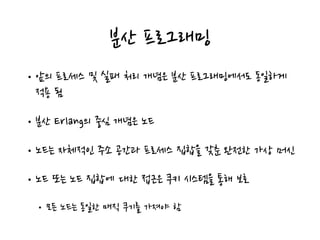 분산 프로그래밍
• 앞의 프로세스 및 실패 처리 개념은 분산 프로그래밍에서도 동일하게
적용 됨
• 분산 Erlang의 중심 개념은 노드
• 노드는 자체적인 주소 공간과 프로세스 집합을 갖춘 완전한 가상 머신
• 노드 또는 노드 집합에 대한 접근은 쿠키 시스템을 통해 보호
• 모든 노드는 동일한 매직 쿠키를 가져야 함